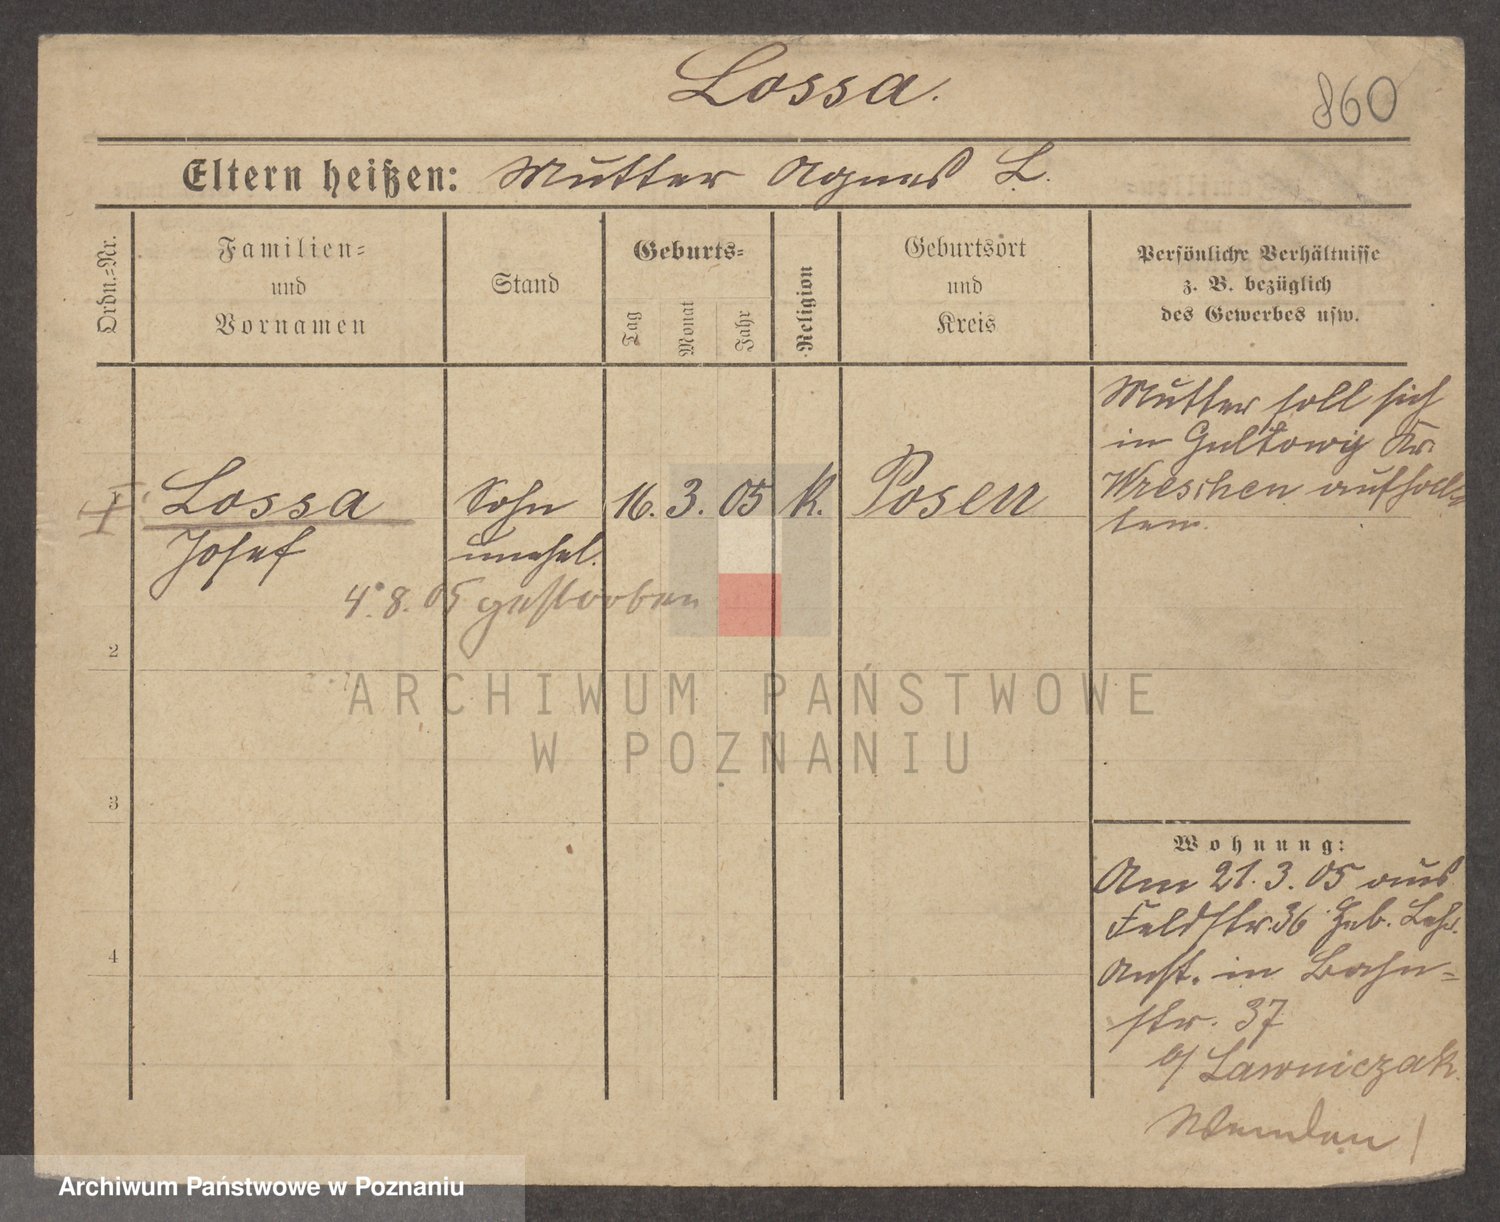 Lossa.
860
Eltern heißen: Mutter Agnes L.
Ordn.=Nr.
Familien=
und
Vornamen
Stand
Geburts=
Tag
Monat
Jahr
Religion
Geburtsort
und
Kreis
Persönliche Verhältnisse
z. B. bezüglich
des Gewerbes usw.
Mutter soll sich
in Gultowy Kr.
Wreschen aufhal-
ten.
1
Lossa
Josef
Sohn
unehel.
16. 3. 05
k.
Posen
4. 8. 05 gestorben
2
3
4
Wohnung:
Am 21. 3. 05 aus
Feldstr. 36 Geb. Lehr.
Anst. in Bahn=
str. 37
b/ Lawniczak
ARCHIWUM PAŃSTWOWE
W POZNANIU
Archiwum Państwowe w Poznaniu